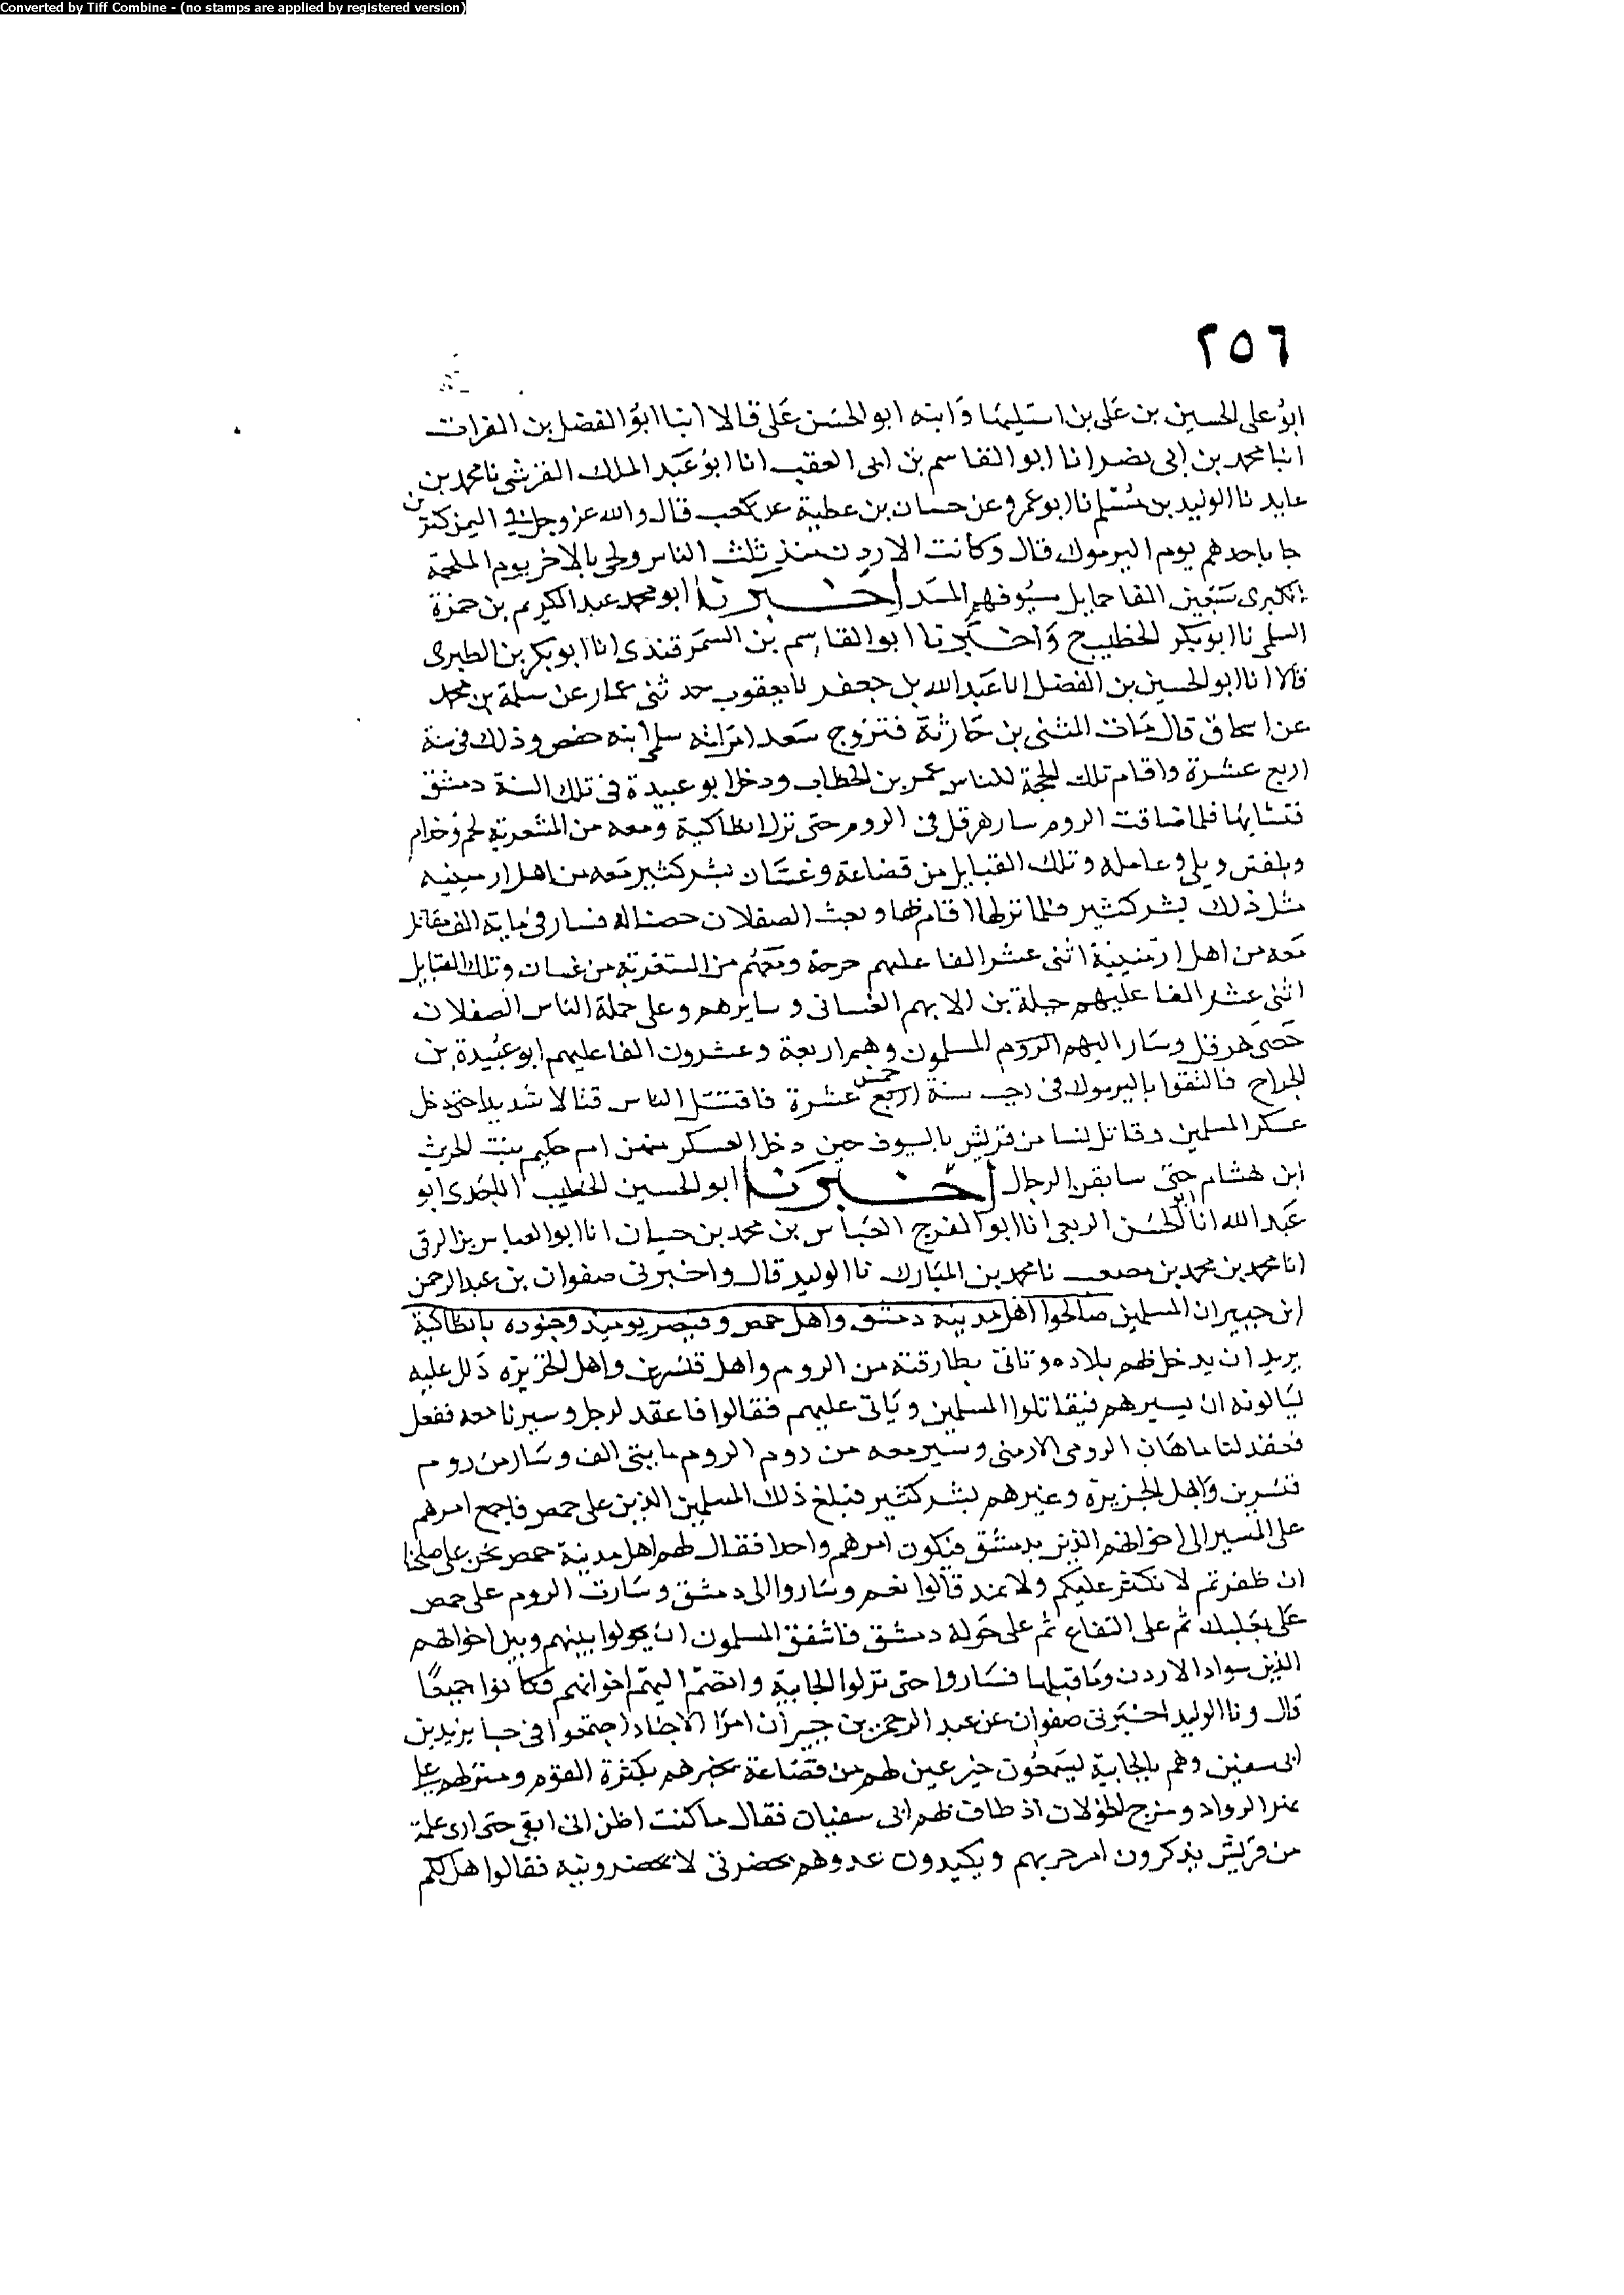 Converted by Tiff Combine - (no stamps are applied by registered version)
٢٥٦
ابو على الحسين بن على بن اسليها وابنه ابو الحسن على قالا انبا ابو الفضل بن الفرات
انبا محمد بن ابى نصر انا ابو القاسم بن ابى العقب انا ابو عبد الملك القرشى نا محمد بن
عايد نا الوليد بن مسلم نا ابو عمرو عن حسان بن عطية عن كعب قال والله عز وجل فى اليمن كنزين
جا باحدهم يوم اليرموك قال وكانت الاردن ثلث الناس ويجى بالاخر يوم الملحمة
الكبرى سبعين الفا حمايل سيوفهم المسد اخبرنا ابو محمد عبد الكريم بن حمزة
السلمى نا ابو بكر الخطيب ح واخبرنا ابو القاسم بن السمرقندى انا ابو بكر بن الطبرى
قالا انا ابو الحسين بن الفضل انا عبد الله بن جعفر نا يعقوب حدثنى عمار عن سلمة بن محمد
عن اسحاق قال مات المثنى بن حارثة فتزوج سعد امراته سلمى ابنه حفص وذلك فى سنة
اربع عشرة واقام تلك الحجة للناس عمر بن الخطاب ودخل ابو عبيدة فى تلك السنة دمشق
فتشاها فلما ضاقت الروم سار هرقل فى الروم حتى نزل انطاكية ومعه من المستعربة لخم وجذام
وبلقين وبلى وعامله وتلك القبايل من قضاعة وغسان بشر كثير معه من اهل ارمينيه
مثل ذلك بشر كثير فلما نزلها اقام بها وبعث الصقلان خصيا له فسار فى ماية الف مقاتل
معه من اهل ارمينية اثنى عشر الفا عليهم جرجة ومعهم من المستعربة من غسان وتلك القبايل
اثنى عشر الفا عليهم جبلة بن الايهم الغسانى وسايرهم وعلى جملة الناس الصقلان
خصى هرقل وسار اليهم الروم المسلمون وهم اربعة وعشرون الفا عليهم ابو عبيدة بن
الجراح فالتقوا باليرموك فى رجب سنة اربع خمس عشرة فاقتتل الناس قتالا شديدا حتى دخل
عسكر المسلمين وقاتل نسا من قريش بالسيوف حين دخل العسكر منهن ام حكيم بنت الحرث
ابن هشام حتى سابقن الرجال اخبرنا ابو الحسين الخطيب ابو
عبد الله انا ابو الحسن الربعى انا ابو الفرج العباس بن محمد بن حبان انا ابو العباس بن الزفتى
انا محمد بن محمد بن مصعب نا محمد بن المبارك نا الوليد قال واخبرنى صفوان بن عبد الرحمن
ابن جبير ان المسلمين صالحوا اهل مدينة دمشق واهل حمص وقيصر يوميذ وجنوده بانطاكية
يريد ان يدخل بهم بلاده وتاتى بطارقته من الروم واهل قنسرين واهل الجزيرة ذلك عليه
يسالونه ان يسيرهم فيقاتلوا المسلمين وياتى عليهم فقالوا فاعقد لرجل وسيرنا معه ففعل
فعقد لنا ماهان الرومى الارمنى وسير معه من روم الروم مايتى الف وسار من روم
قنسرين واهل الجزيرة وغيرهم بشر كثير فبلغ ذلك المسلمين الذين على حمص فاجمع امرهم
على المسير الى اخوانهم الذين بدمشق فيكون امرهم واحدا فقال لهم اهل مدينة حمص نحن على صلحنا
ان ظفرتم لا نكثر عليكم ولا نمد قالوا نعم وساروا الى دمشق وسارت الروم على حمص
على بعلبك ثم على البقاع ثم على حولة دمشق فاشفق المسلمون ان يحولوا بينهم وبين اخوانهم
الذين بسواد الاردن وما قبلها فساروا حتى نزلوا الجابية وانضم اليهم اخوانهم فكانوا جميعا
قال ونا الوليد اخبرنى صفوان عن عبد الرحمن بن جبير ان امرا الاجناد اجتمعوا فى خبا يزيد بن
ابى سفين وهم بالجابية ليستمعون خبر عين لهم من قضاعة يخبرهم بكثرة القوم ومنزلهم على
نهر الرواد ومرج الجولان اذ طاف بهم ابى سفيان فقال ما كنت اظن انى ابقى حتى ارى غلمة
من قريش يذكرون امر حربهم ويكيدون عدوهم بحضرتى لا يحضرونيه فقالوا هل لكم